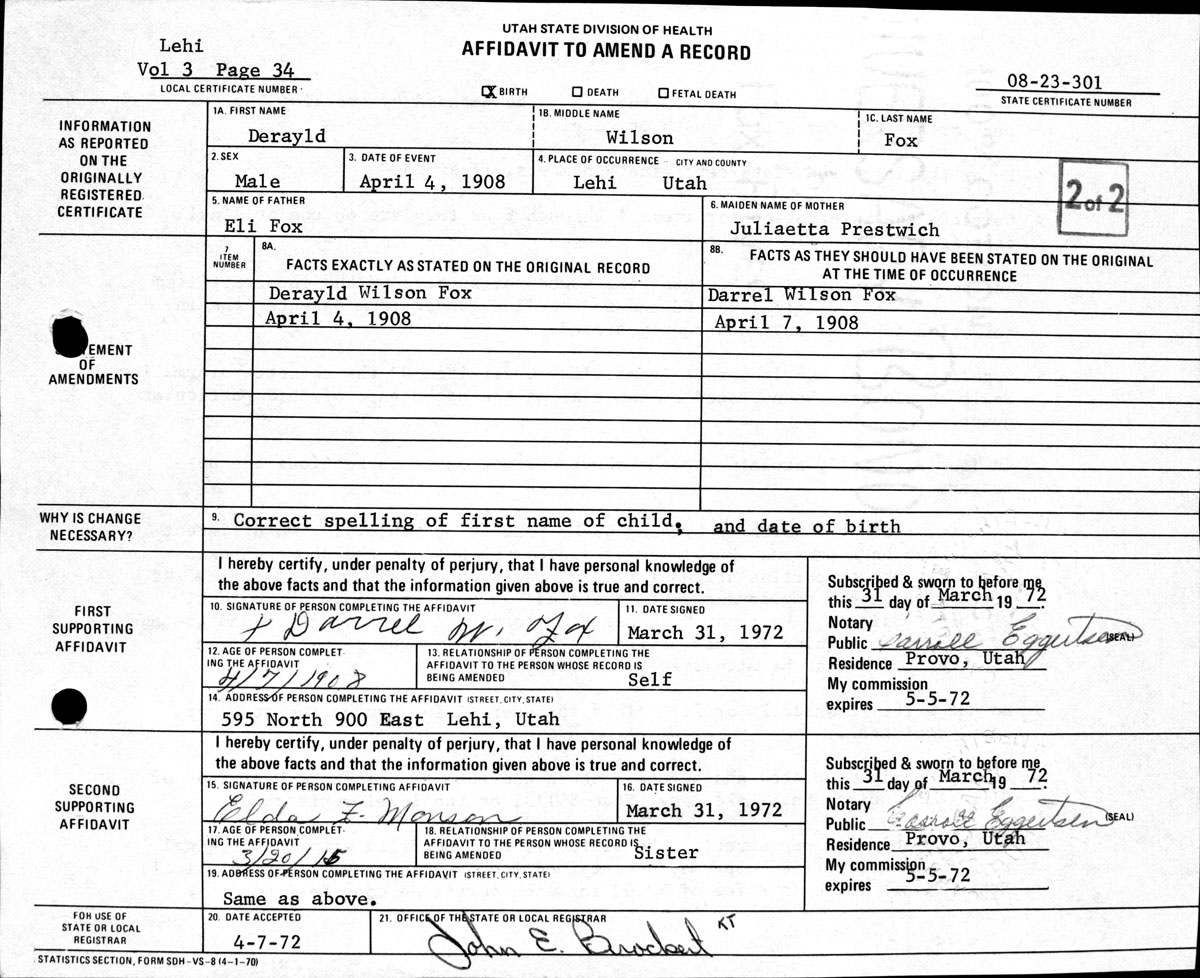 UTAH STATE DIVISION OF HEALTH
AFFIDAVIT TO AMEND A RECORD
Lehi
Vol 3 Page 34
LOCAL CERTIFICATE NUMBER
X BIRTH DEATH FETAL DEATH
08-23-301
STATE CERTIFICATE NUMBER
INFORMATION
AS REPORTED
ON THE
ORIGINALLY
REGISTERED
CERTIFICATE
1A. FIRST NAME
Derayld
1B. MIDDLE NAME
Wilson
1C. LAST NAME
Fox
2. SEX
Male
3. DATE OF EVENT
April 4, 1908
4. PLACE OF OCCURRENCE - CITY AND COUNTY
Lehi Utah
2 of 2
5. NAME OF FATHER
Eli Fox
6. MAIDEN NAME OF MOTHER
Juliaetta Prestwich
STATEMENT
OF
AMENDMENTS
7
ITEM
NUMBER
8A.
FACTS EXACTLY AS STATED ON THE ORIGINAL RECORD
8B.
FACTS AS THEY SHOULD HAVE BEEN STATED ON THE ORIGINAL
AT THE TIME OF OCCURRENCE
Derayld Wilson Fox
Darrel Wilson Fox
April 4, 1908
April 7, 1908
WHY IS CHANGE
NECESSARY?
9. Correct spelling of first name of child, and date of birth
FIRST
SUPPORTING
AFFIDAVIT
I hereby certify, under penalty of perjury, that I have personal knowledge of
the above facts and that the information given above is true and correct.
10. SIGNATURE OF PERSON COMPLETING THE AFFIDAVIT
x Darrel W. Fox
11. DATE SIGNED
March 31, 1972
12. AGE OF PERSON COMPLET-
ING THE AFFIDAVIT
4/7/1908
13. RELATIONSHIP OF PERSON COMPLETING THE
AFFIDAVIT TO THE PERSON WHOSE RECORD IS
BEING AMENDED
Self
14. ADDRESS OF PERSON COMPLETING THE AFFIDAVIT (STREET, CITY, STATE)
595 North 900 East Lehi, Utah
Subscribed & sworn to before me
this 31 day of March 19 72.
Notary
Public Carroll Eggertsen (SEAL)
Residence Provo, Utah
My commission
expires 5-5-72
SECOND
SUPPORTING
AFFIDAVIT
I hereby certify, under penalty of perjury, that I have personal knowledge of
the above facts and that the information given above is true and correct.
15. SIGNATURE OF PERSON COMPLETING AFFIDAVIT
Elda F. Monson
16. DATE SIGNED
March 31, 1972
17. AGE OF PERSON COMPLET-
ING THE AFFIDAVIT
3/20/15
18. RELATIONSHIP OF PERSON COMPLETING THE
AFFIDAVIT TO THE PERSON WHOSE RECORD IS
BEING AMENDED
Sister
19. ADDRESS OF PERSON COMPLETING THE AFFIDAVIT (STREET, CITY, STATE)
Same as above.
Subscribed & sworn to before me
this 31 day of March 19 72.
Notary
Public Carroll Eggertsen (SEAL)
Residence Provo, Utah
My commission
expires 5-5-72
FOR USE OF
STATE OR LOCAL
REGISTRAR
20. DATE ACCEPTED
4-7-72
21. OFFICE OF THE STATE OR LOCAL REGISTRAR
John E. Brockert KT
STATISTICS SECTION, FORM SDH-VS-8 (4-1-70)